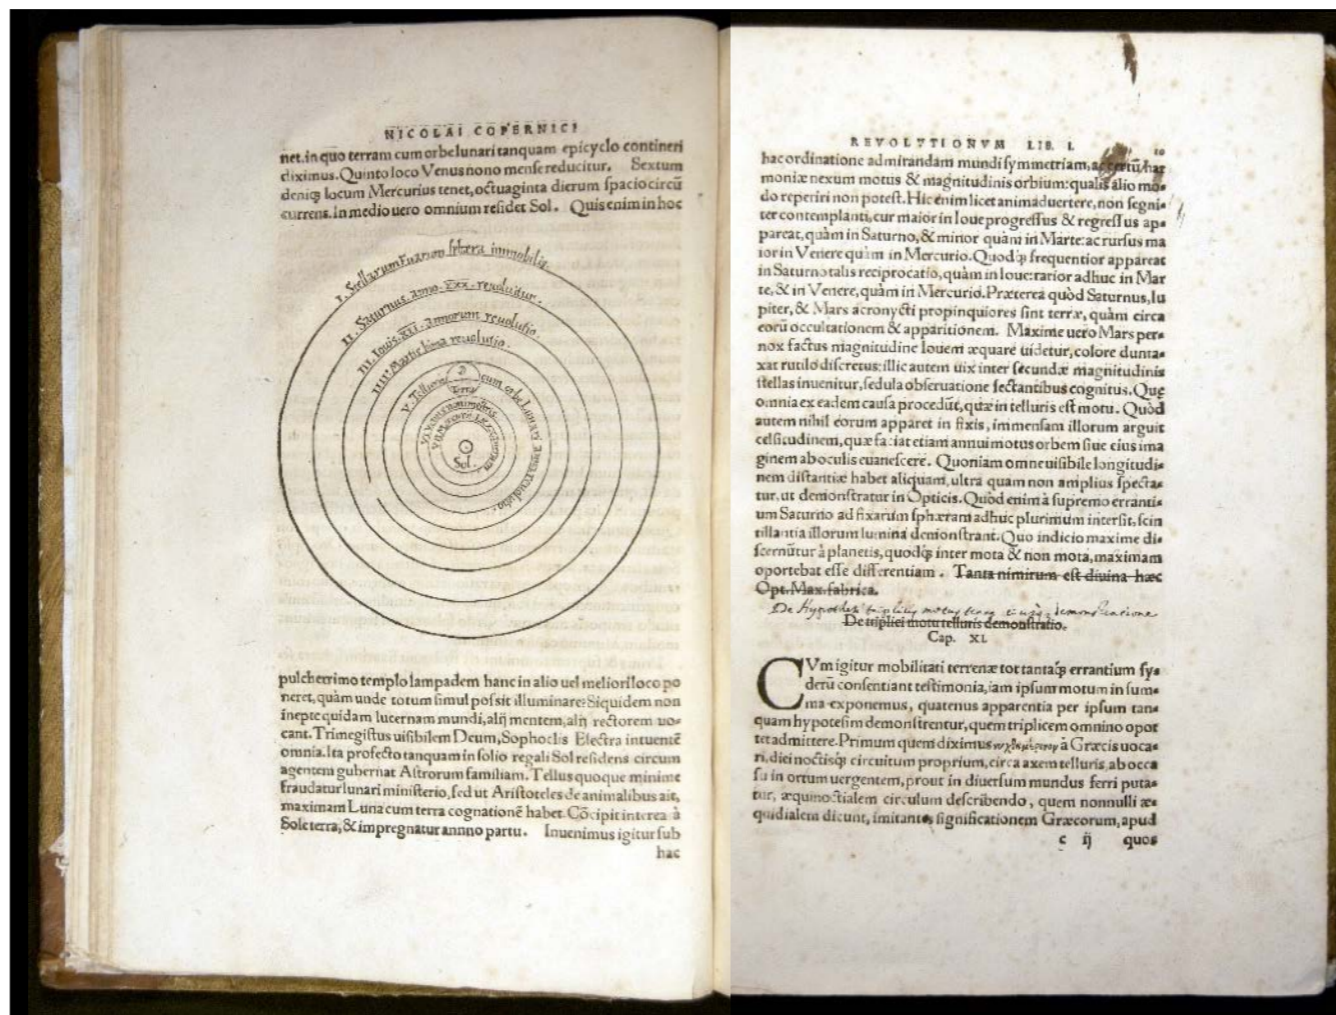 NICOLAI COPERNICI
net. in quo terram cum orbe lunari tanquam epicyclo contineri
diximus. Quinto loco Venus nono mense reducitur. Sextum
deniqꝫ locum Mercurius tenet, octuaginta dierum spacio circū
currens. In medio uero omnium residet Sol. Quis enim in hoc
I. Stellarum Fixarum sphæra immobilis.
II. Saturnus. Anno. XXX. reuoluitur.
III. Iouis. XII. annorum reuolutio.
IIII. Martis bima reuolutio.
V. Telluris cum orbe Lunari annua reuolutio.
Terra
VI. Veneris nonimestris
VII. Mercurij LXXX dierum
Sol.
pulcherrimo templo lampadem hanc in alio uel meliori loco po
neret, quàm unde totum simul possit illuminare? Siquidem non
inepte quidam lucernam mundi, alij mentem, alij rectorem uo-
cant. Trimegistus uisibilem Deum, Sophoclis Electra intuentē
omnia. Ita profecto tanquam in solio regali Sol residens circum
agentem gubernat Astrorum familiam. Tellus quoque minime
fraudatur lunari ministerio, sed ut Aristoteles de animalibus ait,
maximam Luna cum terra cognationē habet. Cōcipit interea à
Sole terra, & impregnatur annno partu. Inuenimus igitur sub
hac
REVOLVTIONVM LIB. I. 10
hac ordinatione admirandam mundi symmetriam, ac certū har
moniæ nexum motus & magnitudinis orbium: qualis alio mo-
do reperiri non potest. Hic enim licet animaduertere, non segni-
ter contemplanti, cur maior in Ioue progressus & regressus ap-
pareat, quàm in Saturno, & minor quàm in Marte: ac rursus ma
ior in Venere quàm in Mercurio. Quodqꝫ frequentior appareat
in Saturno talis reciprocatio, quàm in Ioue: rarior adhuc in Mar
te, & in Venere, quàm in Mercurio. Præterea quòd Saturnus, Iu
piter, & Mars acronycti propinquiores sint terræ, quàm circa
eorū occultationem & apparitionem. Maxime uero Mars per-
nox factus magnitudine Iouem æquare uidetur, colore dunta-
xat rutilo discretus: illic autem uix inter secundæ magnitudinis
stellas inuenitur, sedula obseruatione sectantibus cognitus. Quę
omnia ex eadem causa procedūt, quæ in telluris est motu. Quòd
autem nihil eorum apparet in fixis, immensam illorum arguit
celsitudinem, quæ faciat etiam annui motus orbem siue eius ima
ginem ab oculis euanescere. Quoniam omne uisibile longitudi-
nem distantiæ habet aliquam, ultra quam non amplius specta-
tur, ut demonstratur in Opticis. Quòd enim à supremo erranti-
um Saturno ad fixarum sphæram adhuc plurimum intersit, scin
tillantia illorum lumina demonstrant. Quo indicio maxime di-
scernūtur à planetis, quodqꝫ inter mota & non mota, maximam
oportebat esse differentiam. Tanta nimirum est diuina hæc
Opt. Max. fabrica.
De Hypothesi triplicis motus terræ eiusqꝫ demonstratione
De triplici motu telluris demonstratio.
Cap. XI.
CVm igitur mobilitati terrenæ tot tantaqꝫ errantium sy-
derū consentiant testimonia, iam ipsum motum in sum-
ma exponemus, quatenus apparentia per ipsum tan-
quam hypotesim demonstrentur, quem triplicem omnino opor
tet admittere. Primum quem diximus à Græcis uoca-
ri, diei noctisqꝫ circuitum proprium, circa axem telluris, ab occa
su in ortum uergentem, prout in diuersum mundus ferri puta-
tur, æquinoctialem circulum describendo, quem nonnulli æ-
quidialem dicunt, imitantes significationem Græcorum, apud
c ij quos